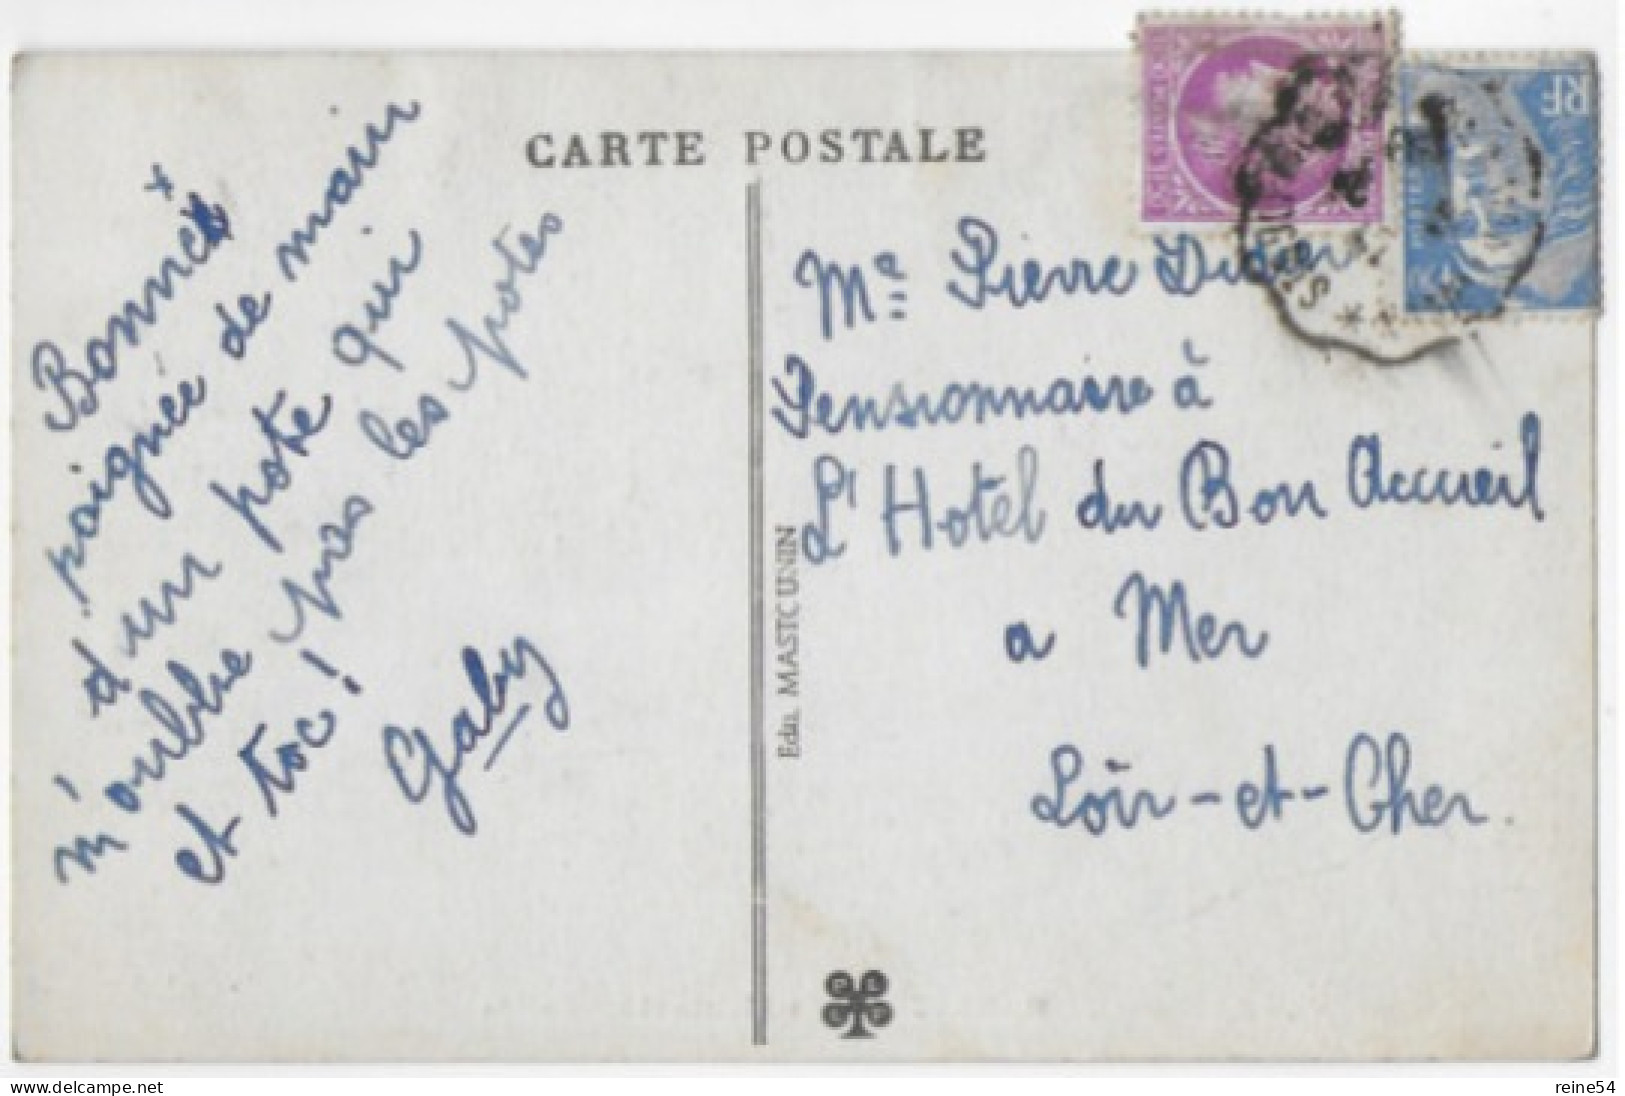 CARTE POSTALE
Bonnes
poignée de main
d'un pote qui
m'oublie pas les potes
et toc!
Gaby
Edn. MASTCUNIN
Mr Pierre Didier
Pensionnaire à
L'Hotel du Bon Accueil
a Mer
Loir-et-Cher.
RF
www.delcampe.net
reine54